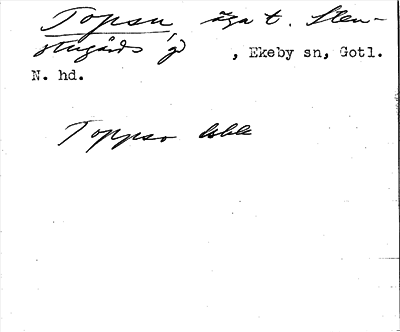 Topsu äga t. Sten-
stugårds g, Ekeby sn, Gotl.
N. hd.
Toppso